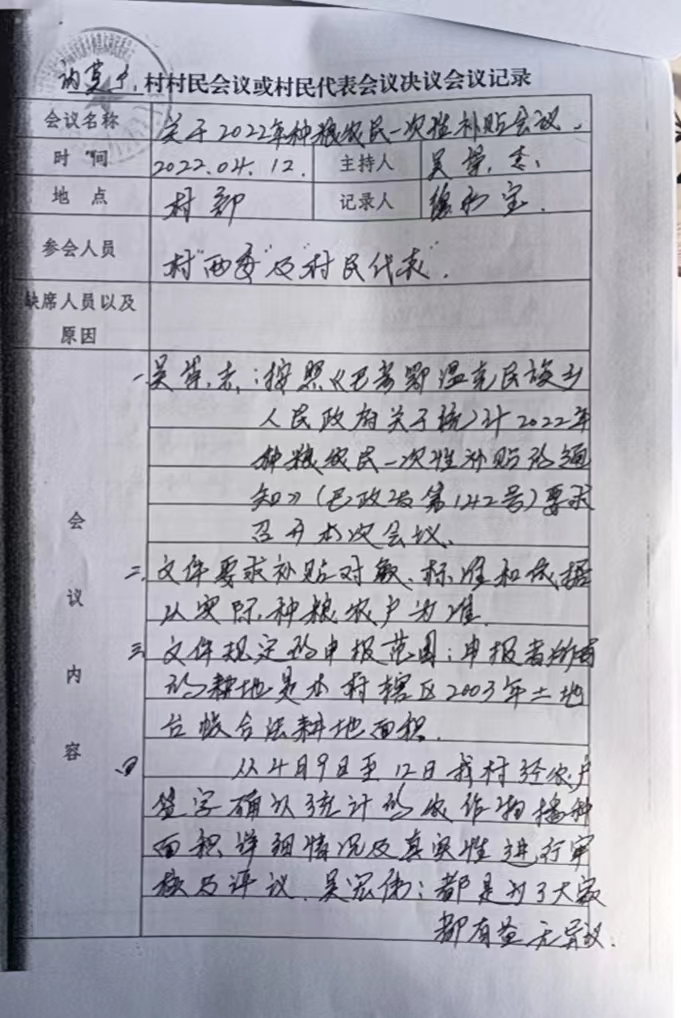 村村民会议或村民代表会议决议会议记录
会议名称 关于2022年种粮农民一次性补贴会议.
时 间 2022.04.12. 主持人 吴
地 点 村部 记录人 宝.
参会人员 村"两委"及"村民代表".
缺席人员以及
原因
会议内容
一、吴 志:按照《巴彦鄂温克民族乡
人民政府关于统计2022年
种粮农民一次性补贴的通
知》(巴政发第142号)要求
召开本次会议、
二、文件要求补贴对象、标准和依据
以实际种粮农户为准.
三、文件规定的申报范围:申报者所有
的耕地是本村辖区2003年土地
台帐合法耕地面积.
四 从4月9日至12日我村经农户
签字确认统计的农作物播种
面积详细情况及真实性进行审
核及评议.吴宏伟:都是为了大家
都有益无异议.